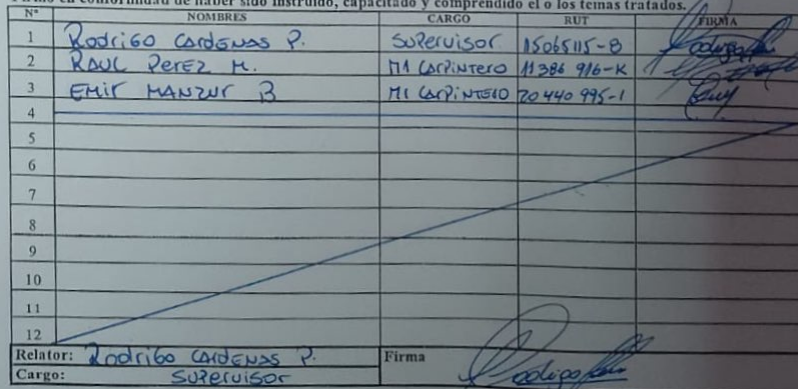 Firmo en conformidad de haber sido instruido, capacitado y comprendido el o los temas tratados.
N° NOMBRES CARGO RUT FIRMA
1 Rodrigo Cardenas P. Supervisor 15065115-8
2 RAUL Perez M. M1 Carpintero 11386 916-K
3 EMIR MANZUR B M1 Carpintero 20 440 995-1
4
5
6
7
8
9
10
11
12
Relator: Rodrigo Cardenas P. Firma
Cargo: Supervisor